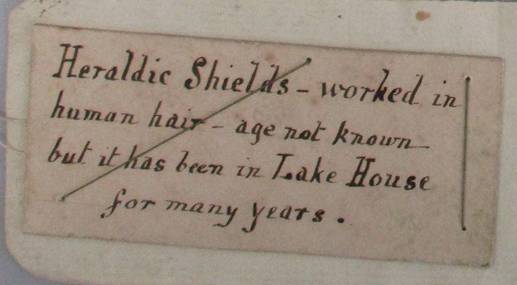 Heraldic Shields - worked in
human hair - age not known
but it has been in Lake House
for many years.